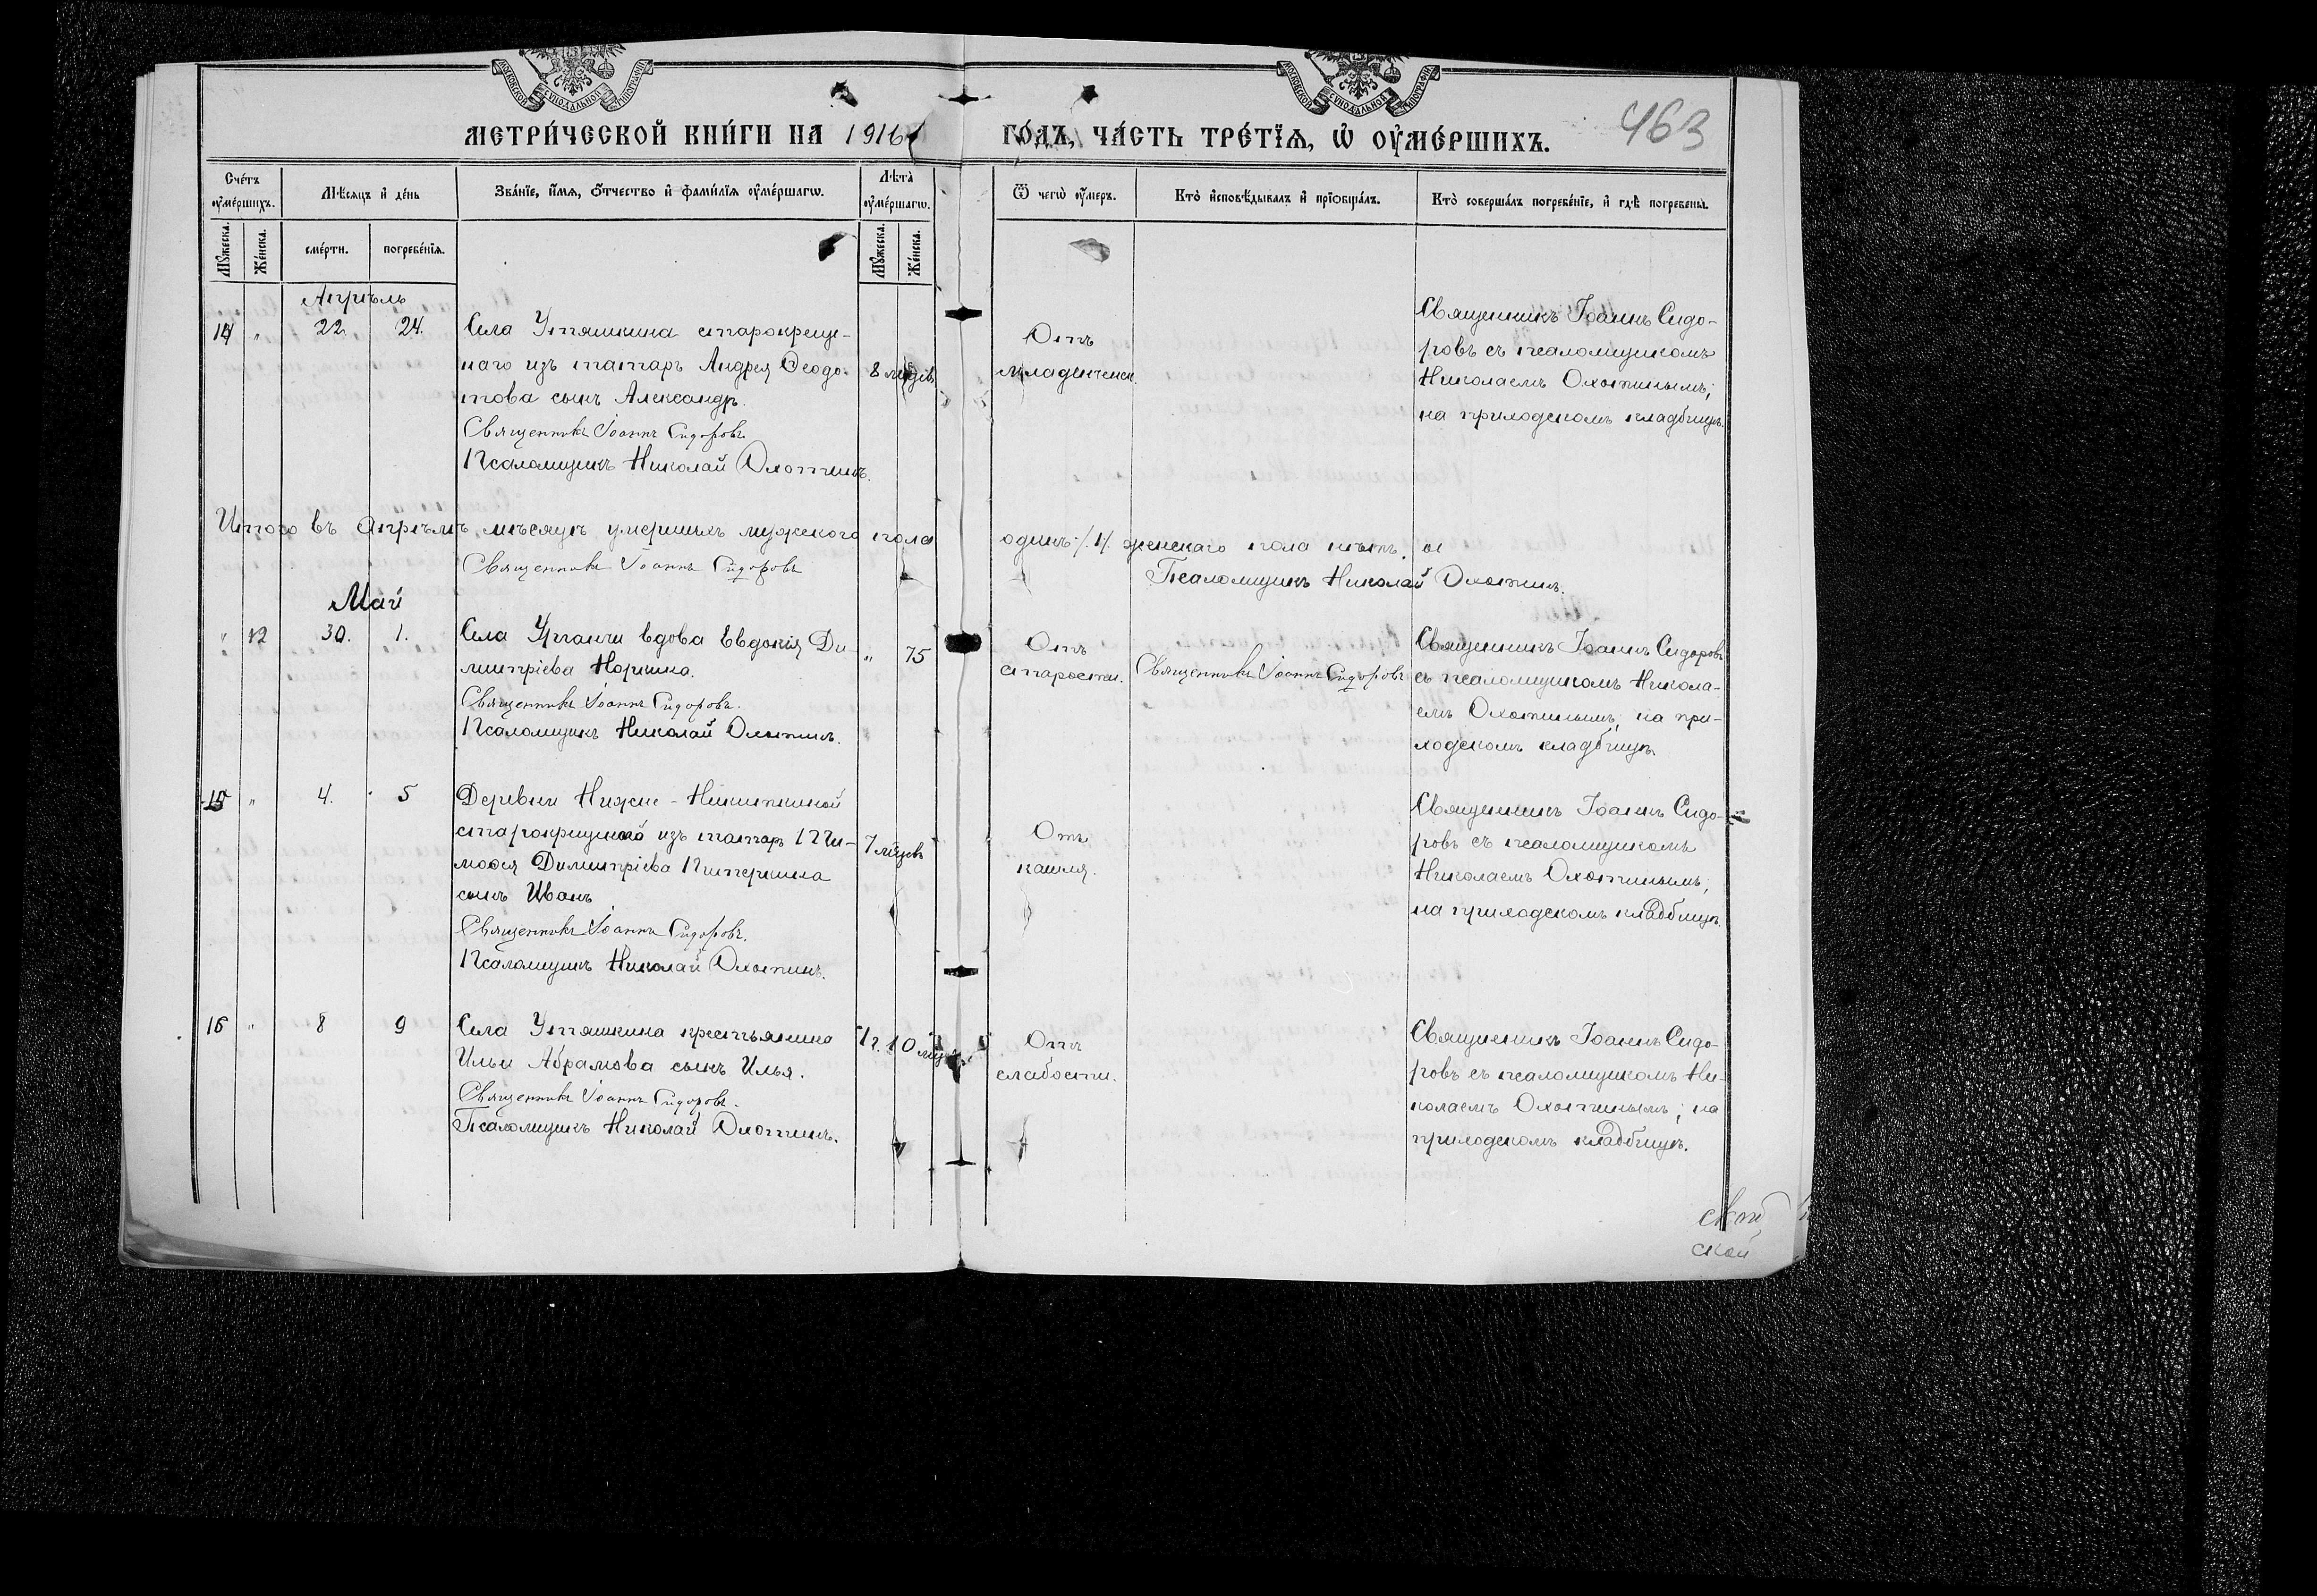 МОСКОВСКОЙ СѴНОДАЛЬНОЙ ТИПОГРАФІИ
МОСКОВСКОЙ СѴНОДАЛЬНОЙ ТИПОГРАФІИ
МЕТРИ́ЧЕСКОЙ КНИ́ГИ НА 1916 ГО́ДЪ, ЧА́СТЬ ТРЕ́ТІѦ, Ѡ҆ ОУ҆МЕ́РШИХЪ.
463
Сче́тъ оу҆ме́ршихъ.
Мѣ́сѧцъ и҆ де́нь
Зва́нїе, и҆́мѧ, ѻ҆́тчество и҆ фами́лїѧ оу҆ме́ршагѡ.
Лѣ́та оу҆ме́ршагѡ.
Ѿ чегѡ̀ оу҆́меръ.
Кто̀ и҆сповѣ́дывалъ и҆ прїѡбща́лъ.
Кто̀ соверша́лъ погребе́нїе, и҆ гдѣ̀ погребены̀.
Мꙋ́жеска.
Же́нска.
сме́рти.
погребе́нїѧ.
Мꙋ́жеска.
Же́нска.
Апрѣль
14 " 22. 24. Села Утяшкина старокреще-
наго изъ татаръ Андрея Ѳеодо-
това сынъ Александръ.
Священникъ Іоаннъ Сидоровъ
Псаломщикъ Николай Охотинъ.
8 мѣсяц.
Отъ
младенческ.
Священникъ Іоаннъ Сидо-
ровъ съ псаломщикомъ
Николаемъ Охотинымъ;
на приходскомъ кладбищѣ.
Итого въ Апрѣлѣ мѣсяцѣ умершихъ мужского пола одинъ /.1/. женскаго пола нѣтъ.
Священникъ Іоаннъ Сидоровъ
Псаломщикъ Николай Охотинъ.
Май
" 12 30. 1. Села Урганчи вдова Евдокія Ди-
митріева Норкина.
Священникъ Іоаннъ Сидоровъ.
Псаломщикъ Николай Охотинъ.
" 75
Отъ
старости.
Священникъ Іоаннъ Сидоровъ
Священникъ Іоаннъ Сидоровъ
съ псаломщикомъ Никола-
емъ Охотинымъ; на при-
ходскомъ кладбищѣ.
15 " 4. 5 Деревни Нижне-Никиткиной
старокрещенаго изъ татаръ Ти-
моѳея Димитріева Питеркина
сынъ Иванъ
Священникъ Іоаннъ Сидоровъ.
Псаломщикъ Николай Охотинъ.
7 мѣсяцевъ
Отъ
кашля.
Священникъ Іоаннъ Сидо-
ровъ съ псаломщикомъ
Николаемъ Охотинымъ;
на приходскомъ кладбищѣ.
16 " 8 9 Села Утяшкина крестьянина
Ильи Абрамова сынъ Илья.
Священникъ Іоаннъ Сидоровъ.
Псаломщикъ Николай Охотинъ.
1 г. 10 мѣс.
Отъ
слабости.
Священникъ Іоаннъ Сидо-
ровъ съ псаломщикомъ Ни-
колаемъ Охотинымъ; на
приходскомъ кладбищѣ.
ской